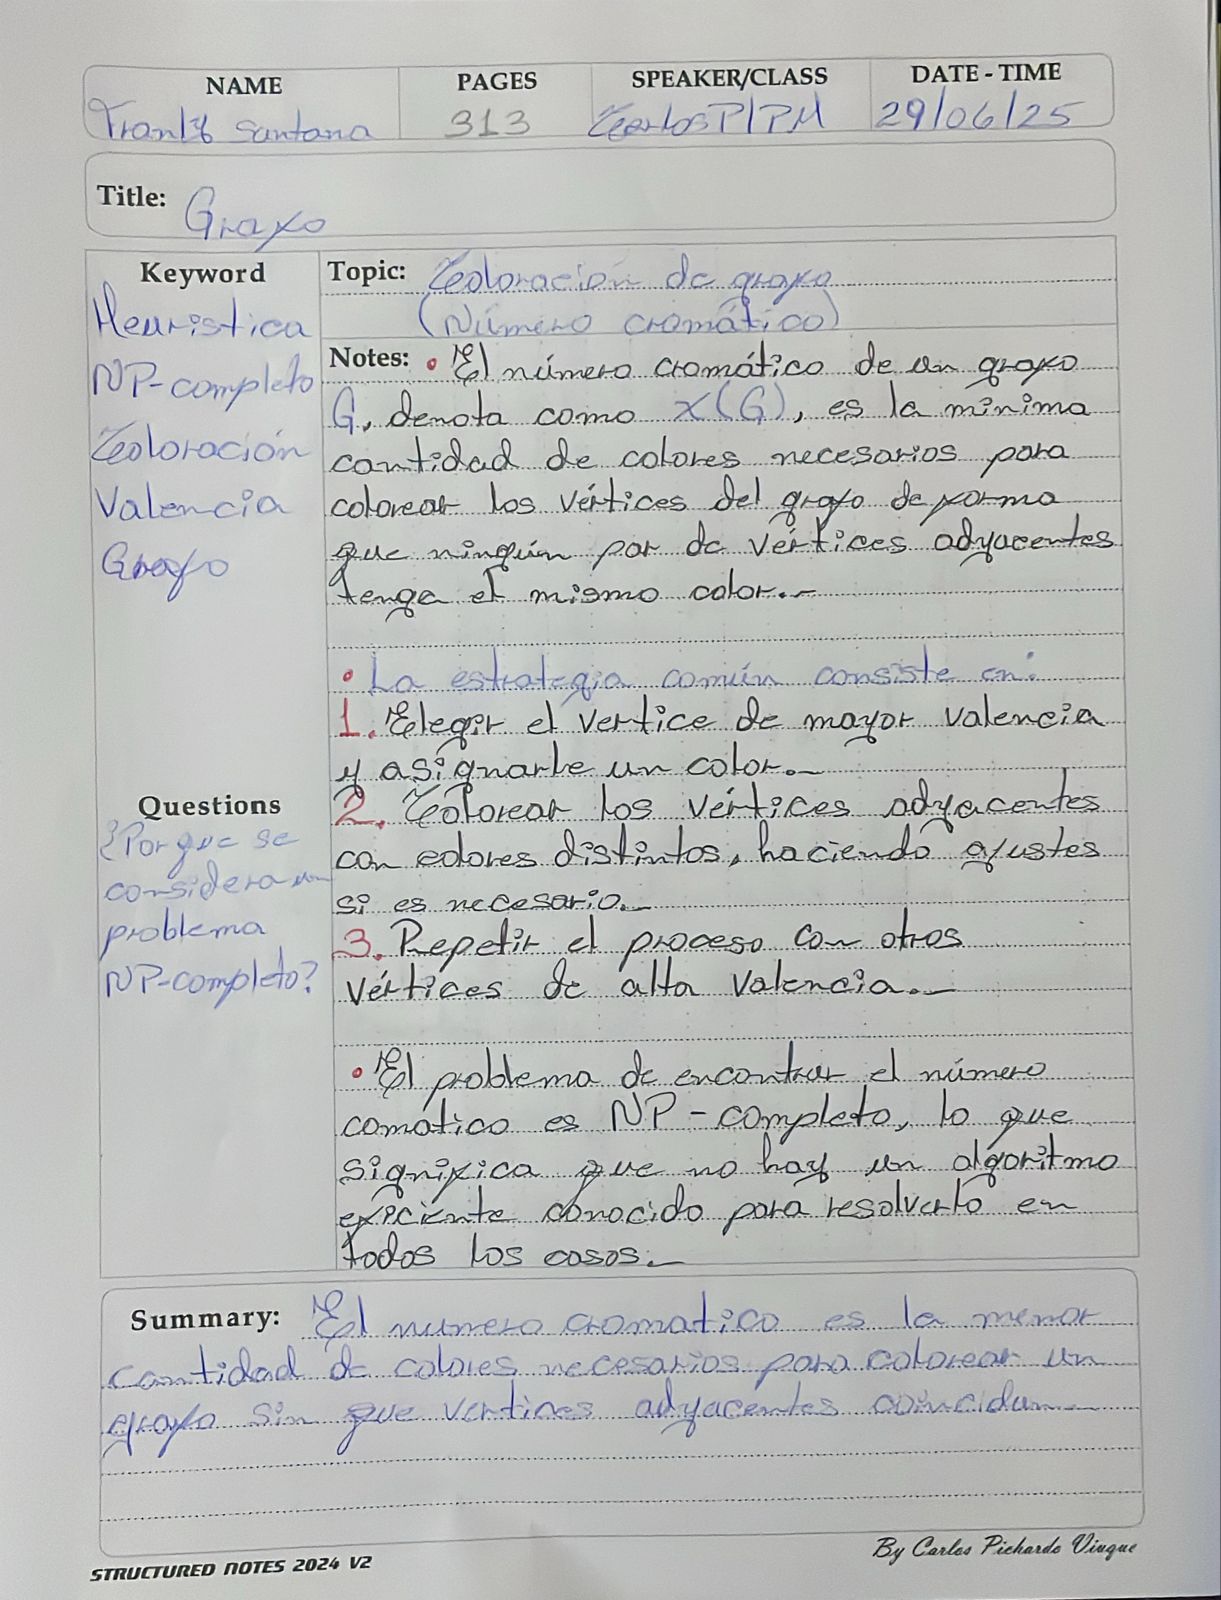 NAME
PAGES
SPEAKER/CLASS
DATE - TIME
Santana
313
Carlos P/PM
29/06/25
Title: Grafo
Keyword
Heurística
NP-completo
Coloración
Valencia
Grafo
Topic: Coloración de grafo
(Número cromático)
Notes: • El número cromático de un grafo
G, denota como χ(G), es la mínima
cantidad de colores necesarios para
colorear los vértices del grafo de forma
que ningún par de vértices adyacentes
tenga el mismo color.-
• La estrategia común consiste en:
1. Elegir el vertice de mayor valencia
y asignarle un color.-
2. Colorear los vértices adyacentes
con colores distintos, haciendo ajustes
si es necesario.-
3. Repetir el proceso con otros
vértices de alta valencia.-
• El problema de encontrar el número
comático es NP-completo, lo que
significa que no hay un algoritmo
eficiente conocido para resolverlo en
todos los casos.-
Questions
¿Por que se
considera un
problema
NP-completo?
Summary: El numero cromatico es la menor
cantidad de colores necesarios para colorear un
grafo sin que vertices adyacentes coincidan.-
STRUCTURED NOTES 2024 V2
By Carlos Pichardo Viuque